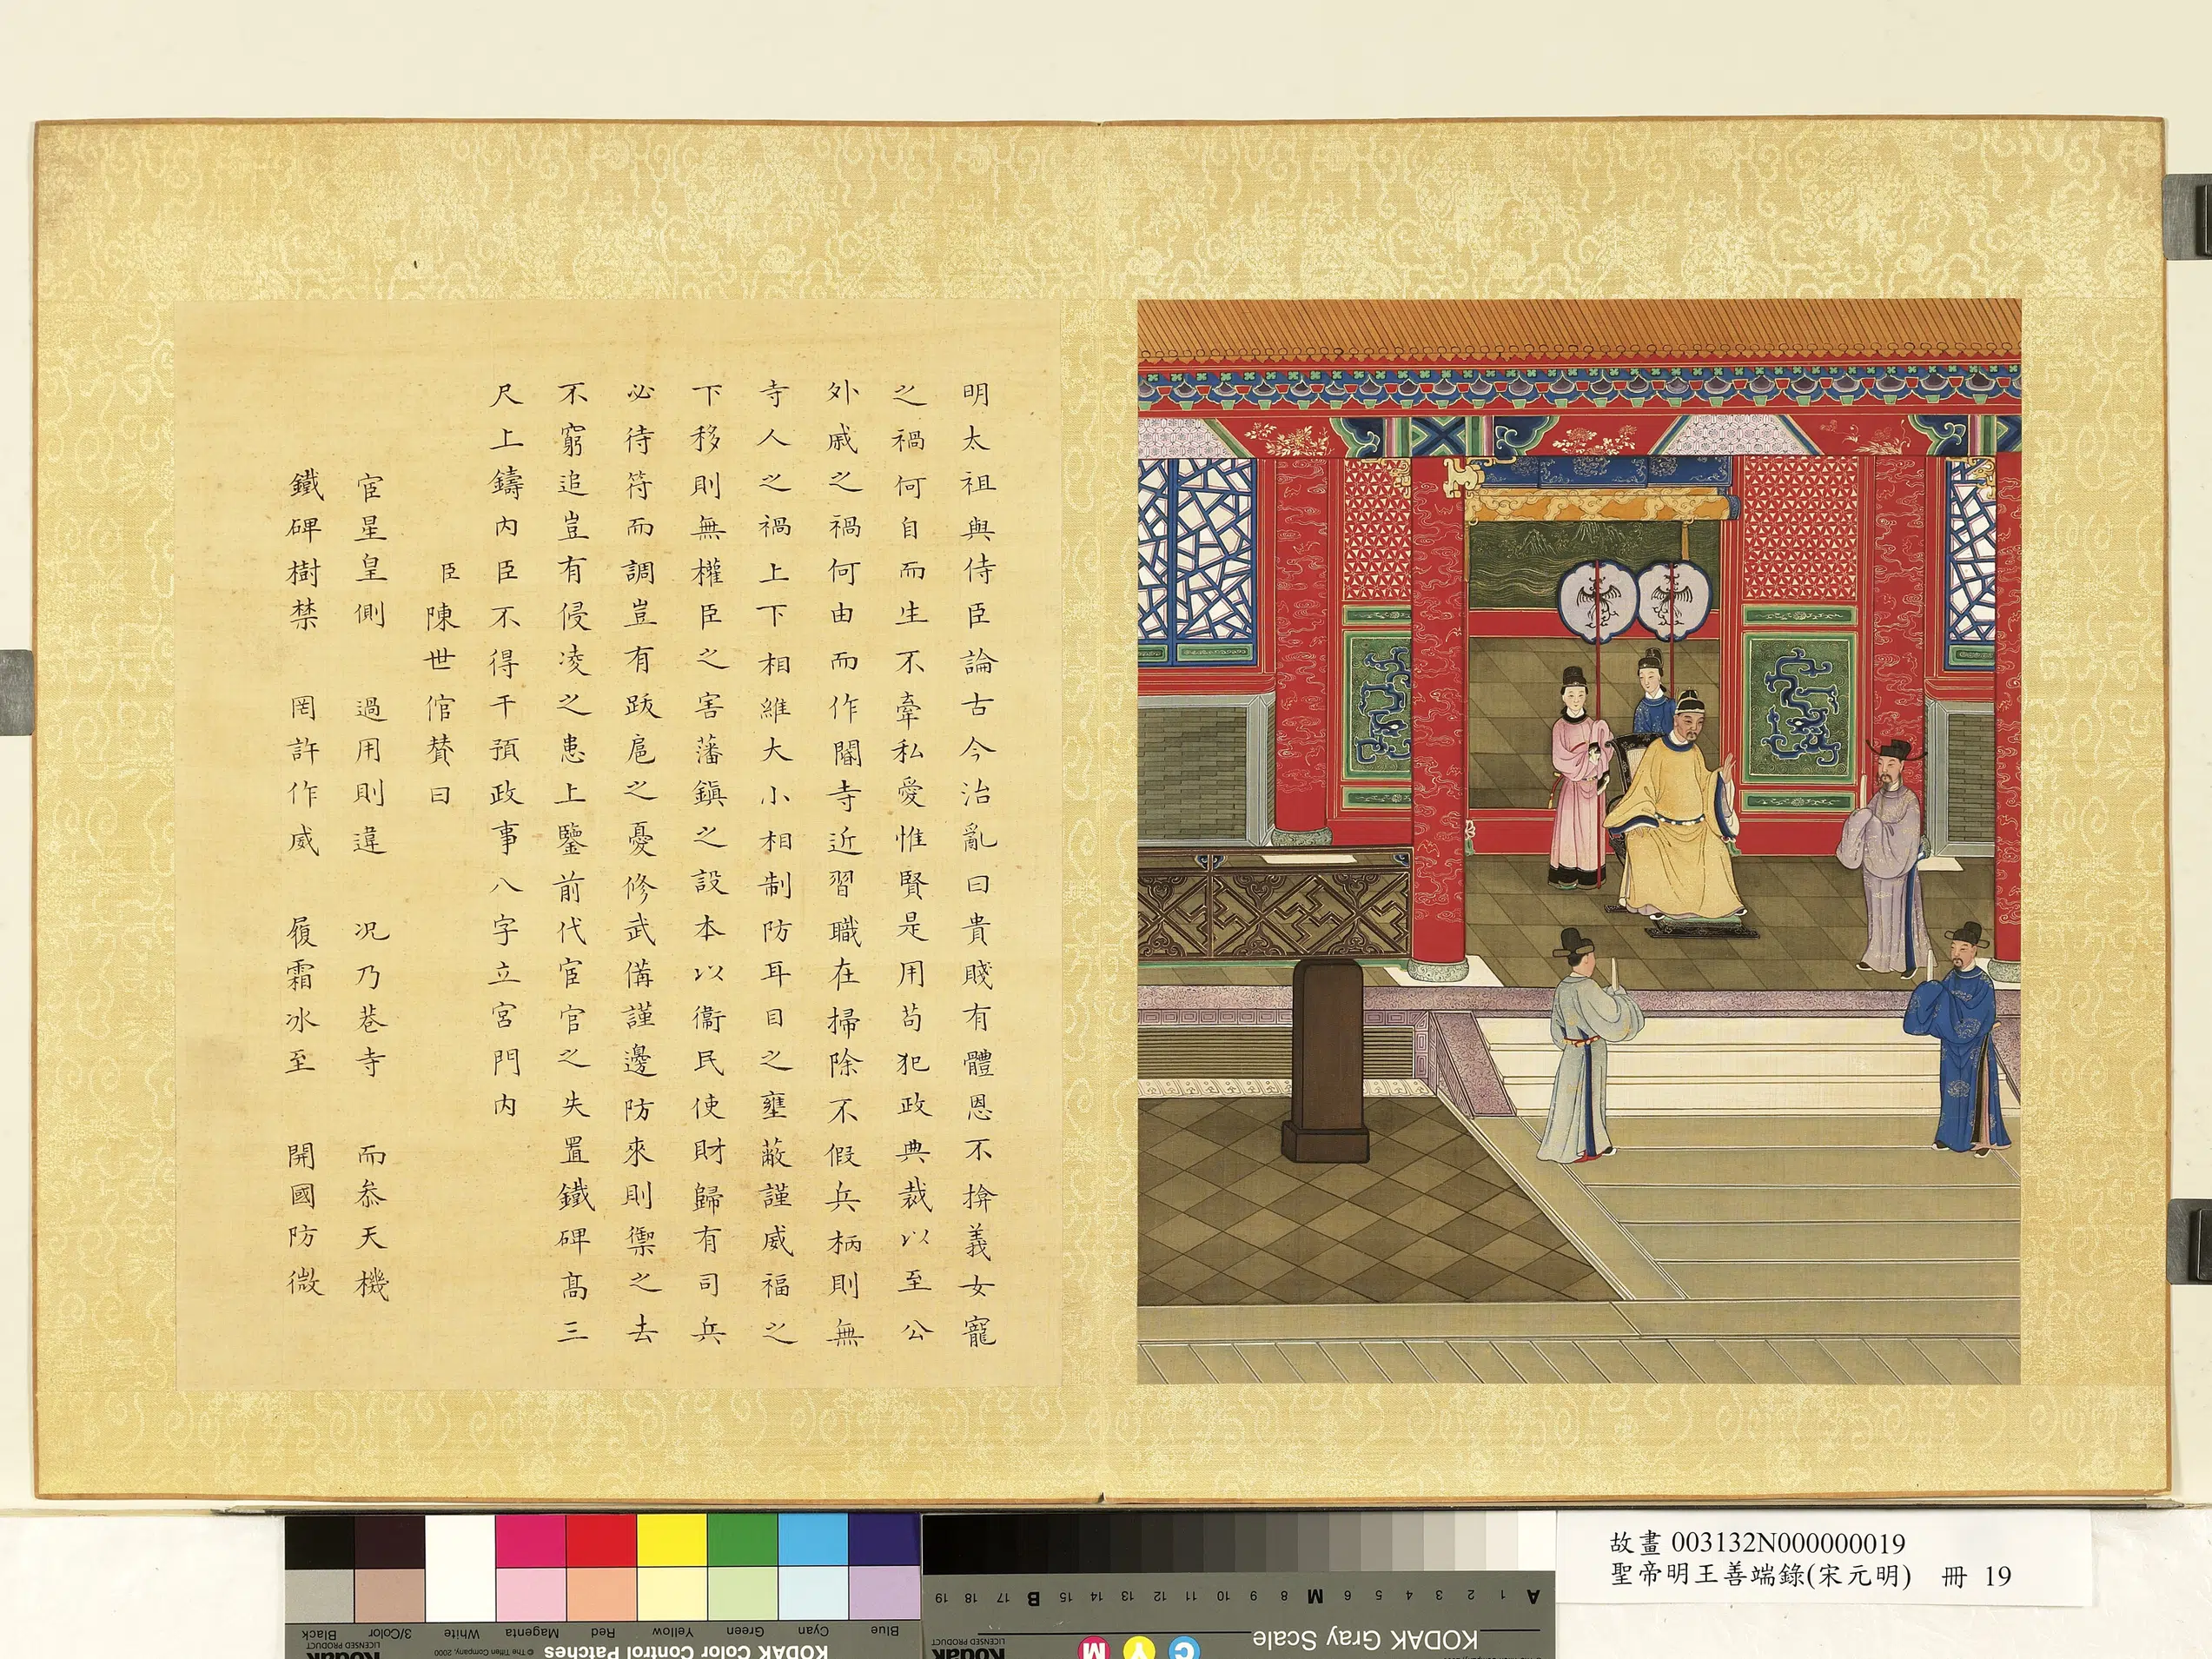 明太祖與侍臣論古今治亂曰貴賤有體恩不揜義女寵
之禍何自而生不牽私愛惟賢是用苟犯政典裁以至公
外戚之禍何由而作閽寺近習職在掃除不假兵柄則無
寺人之禍上下相維大小相制防耳目之壅蔽謹威福之
下移則無權臣之害藩鎮之設本以衞民使財歸有司兵
必待符而調豈有跋扈之憂修武備謹邊防來則禦之去
不窮追豈有侵凌之患上鑒前代宦官之失置鐵碑髙三
尺上鑄內臣不得干預政事八字立宮門內
臣陳世倌贊曰
宦星皇側 過用則違 况乃巷寺 而叅天機
鐵碑樹禁 罔許作威 履霜冰至 開國防微
故畫 003132N000000019
聖帝明王善端錄(宋元明) 冊 19
Black 3/Color White Magenta Red Yellow Green Cyan Blue
LICENSED PRODUCT
Kodak
© The Tiffen Company, 2000
KODAK Color Control Patches
A 1 2 3 4 5 6 M 8 9 10 11 12 13 14 15 B 17 18 19
KODAK Gray Scale
C Y M
Kodak
LICENSED PRODUCT